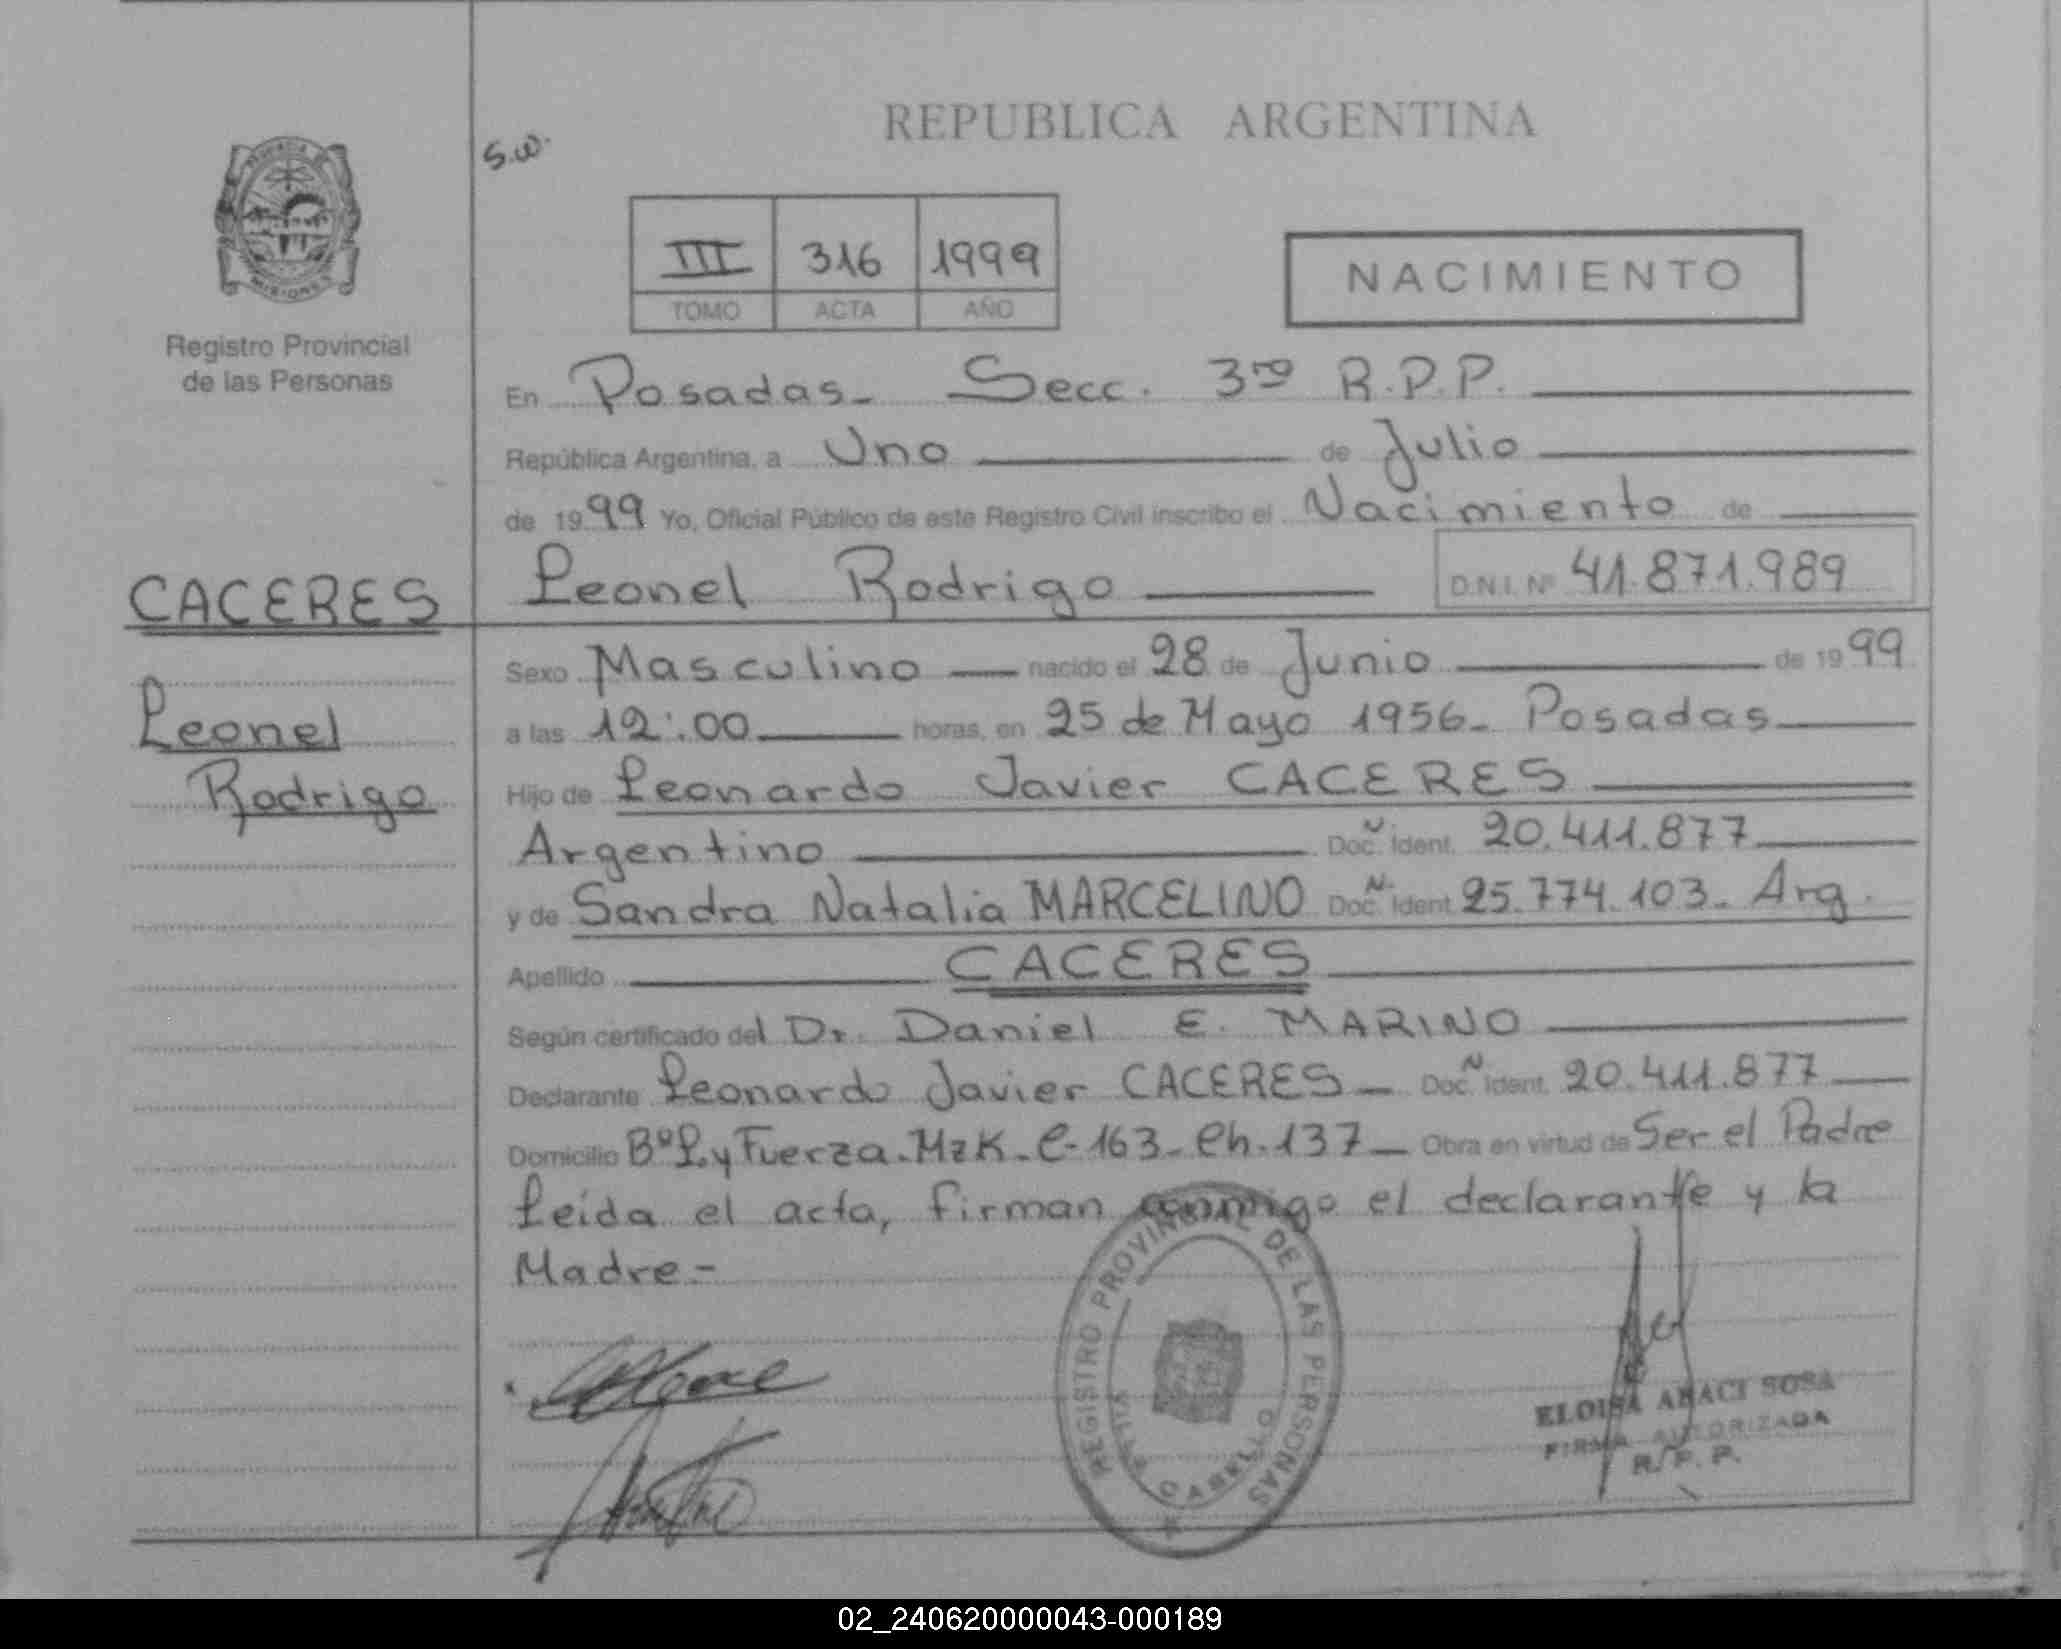 REPUBLICA ARGENTINA
S.W.
PROVINCIA DE
MISIONES
Registro Provincial
de las Personas
III 316 1999
TOMO ACTA AÑO
NACIMIENTO
En Posadas- Secc. 3ra R.P.P.
República Argentina, a Uno de Julio
de 1999 Yo, Oficial Público de este Registro Civil inscribo el Nacimiento de
CACERES
Leonel
Rodrigo
Leonel Rodrigo D.N.I. Nº 41.871.989
Sexo Masculino nacido el 28 de Junio de 1999
a las 12:00 horas, en 25 de Mayo 1956- Posadas
Hijo de Leonardo Javier CACERES
Argentino Doc. N. Ident. 20.411.877
y de Sandra Natalia MARCELINO Doc. N. Ident. 25.774.103- Arg.
Apellido CACERES
Según certificado del Dr. Daniel E. MARINO
Declarante Leonardo Javier CACERES- Doc. N. Ident. 20.411.877
Domicilio Bº L. y Fuerza-MzK-C-163-Ch-137- Obra en virtud de Ser el Padre
Leída el acta, firman conmigo el declarante y la
Madre-
REGISTRO PROVINCIAL DE LAS PERSONAS
VILLA CABELLO
ELOISA ABACI SOSA
FIRMA AUTORIZADA
R. P. P.
02_240620000043-000189